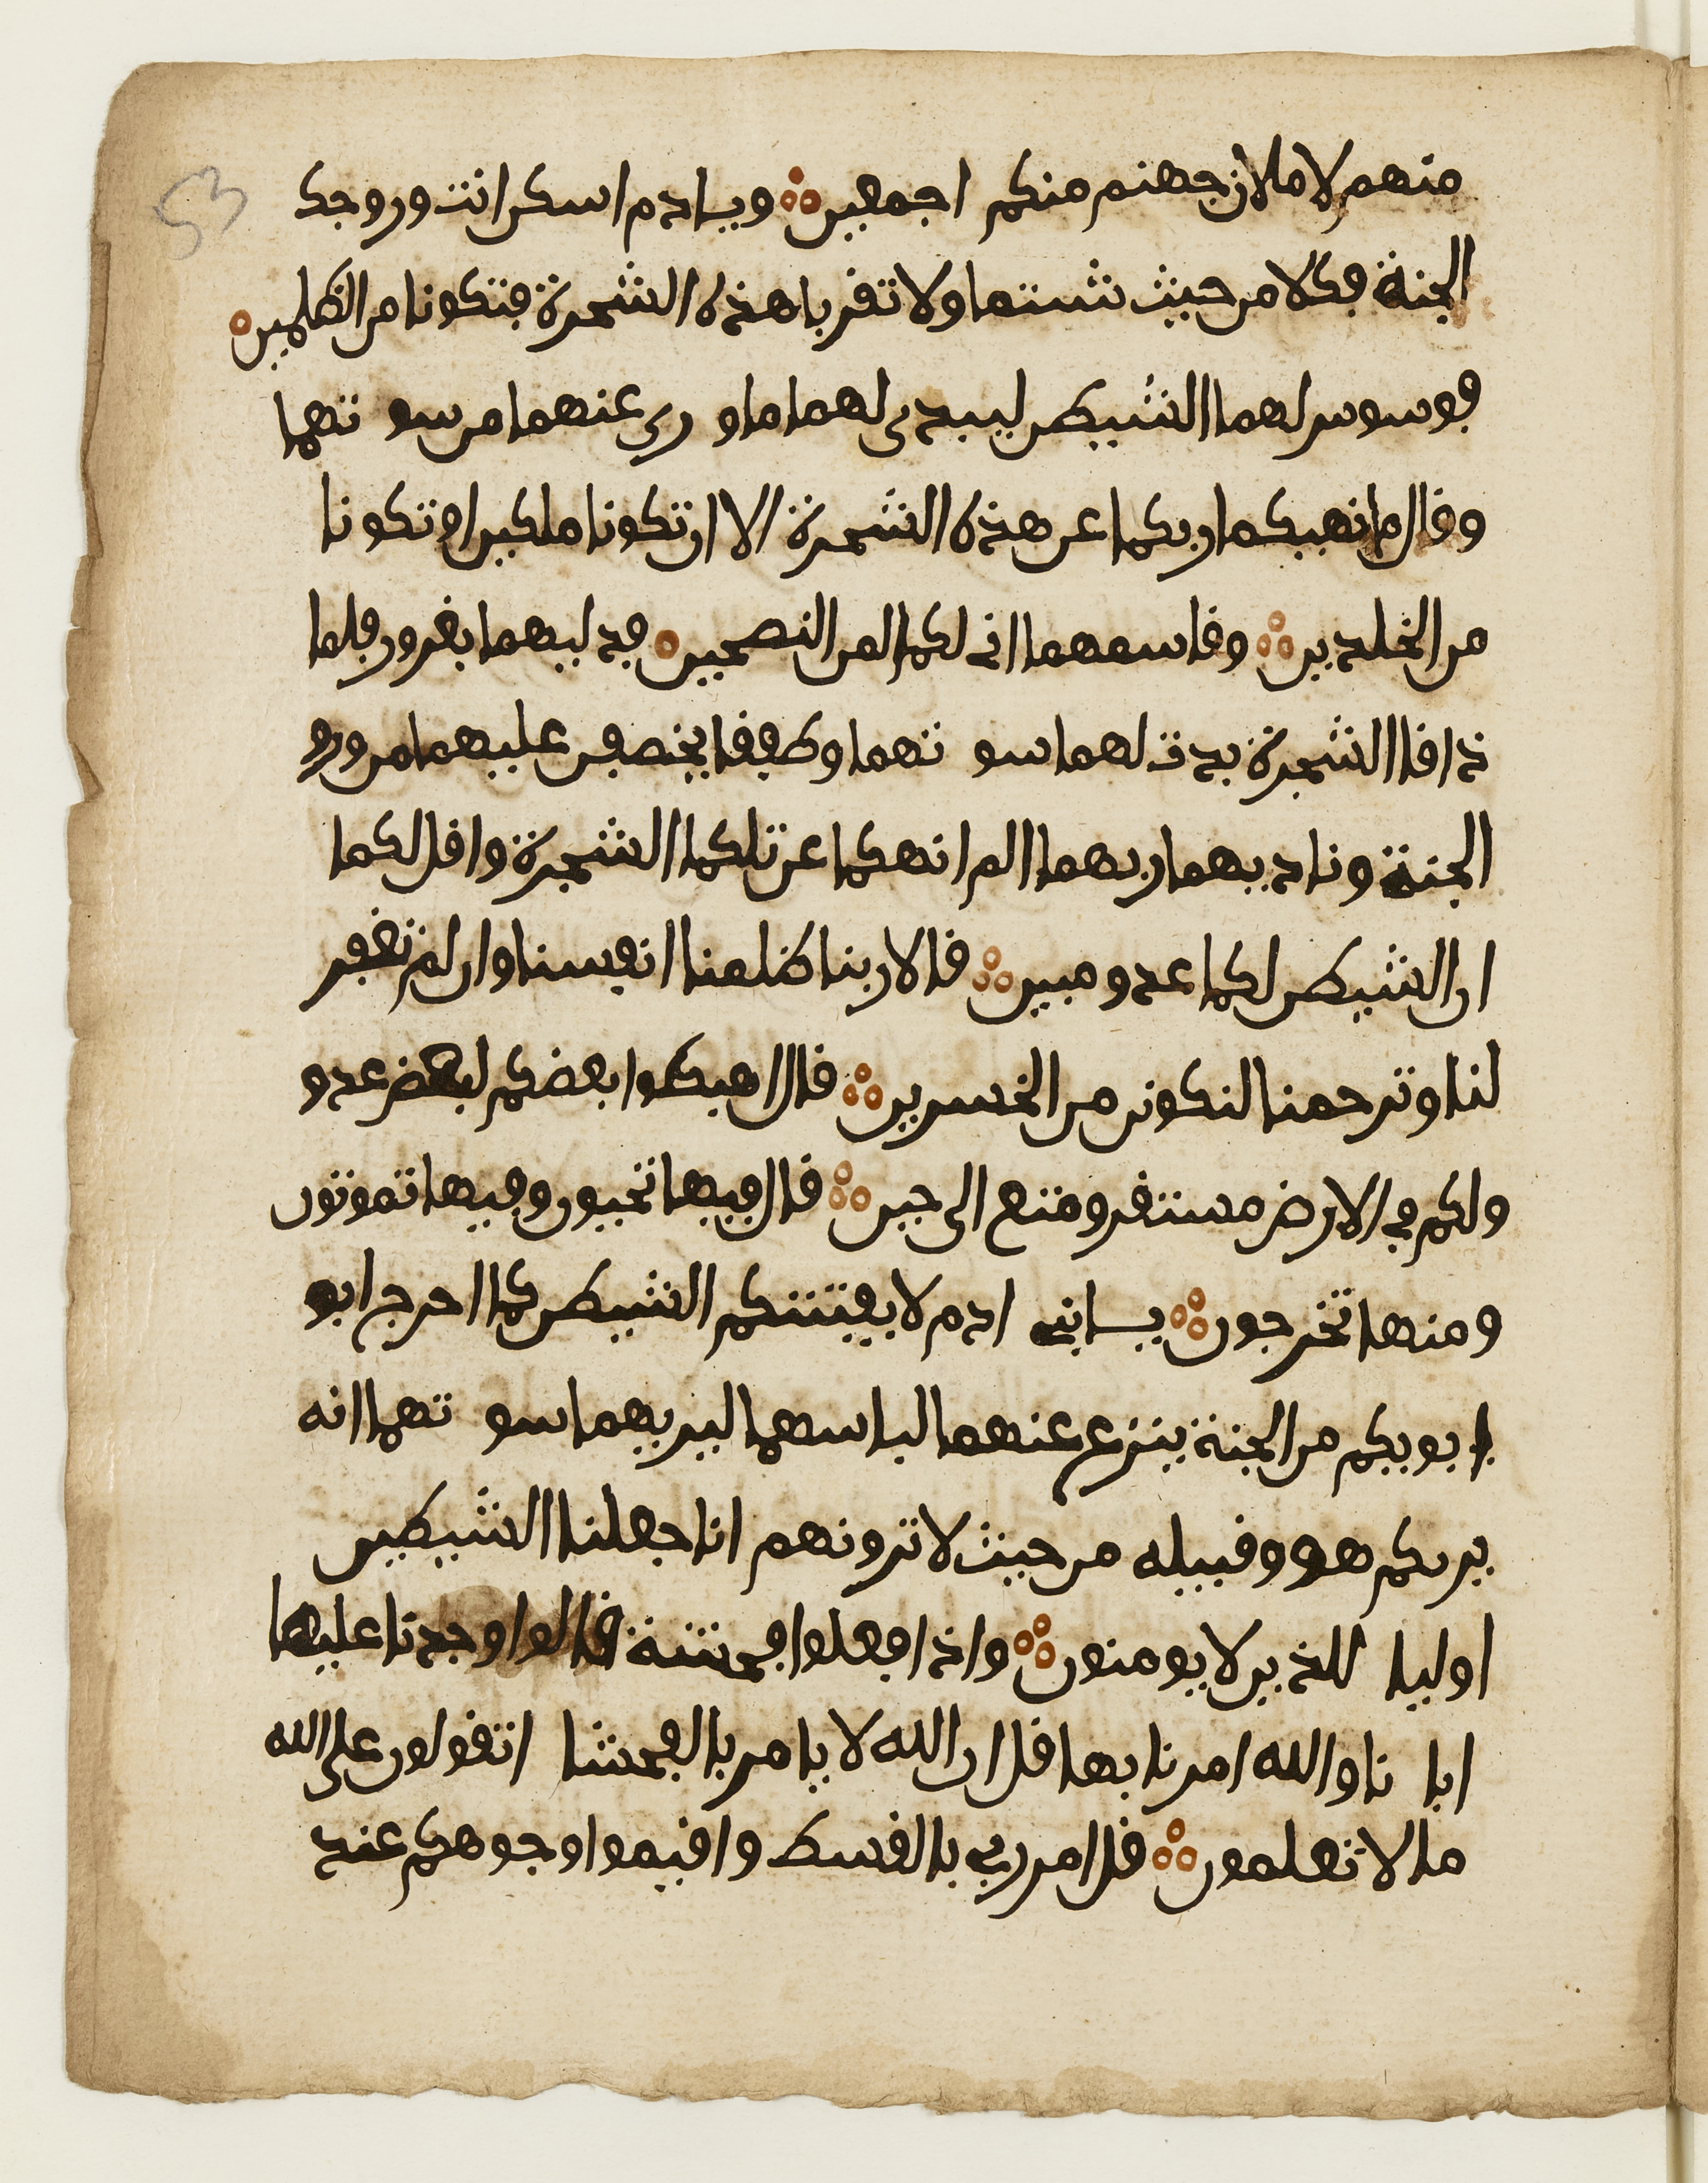 53
منهم لاملان جهنم منكم اجمعين ويـادم اسكن انت وزوجك
الجنة فكلا من حيث شيتما ولا تقربا هذه الشجرة فتكونا من الظلمين
فوسوس لهما الشيطن ليبدى لهما ما و رى عنهما من سو تهما
وقال ما نهيكما ربكما عن هذه الشجرة الا ان تكونا ملكين او تكونا
من الخلدين وقاسمهما انى لكما لمن النصحين فدليهما بغرور فلما
ذاقا الشجرة بدت لهما سو تهما وطفقا يخصفن عليهما من ورو
الجنة وناديهما ربهما الم انهكما عن تلكما الشجرة واقل لكما
ان الشيطن لكما عدو مبين قالا ربنا ظلمنا انفسنا وان لم تغفر
لنا وترحمنا لنكونن من الخسرين قال اهبطوا بعضكم لبعض عدو
ولكم في الارض مستقر ومتع الى حين قال فيها تحيون وفيها تموتون
ومنها تخرجون يـابني ادم لا يفتننكم الشيطن كما احرج ابو
ا بويكم من الجنة ينزع عنهما لباسهما ليريهما سو تهما انه
يريكم هو وقبيله من حيث لا ترونهم انا جعلنا الشيطين
اوليا للذين لا يومنون واذا فعلوا فحشة قالوا وجدنا عليها
ابا نا والله امرنا بها قل ان الله لا يامر بالفحشا اتقولون على الله
ما لا تعلمون قل امر ربي بالقسط واقيموا وجوهكم عند